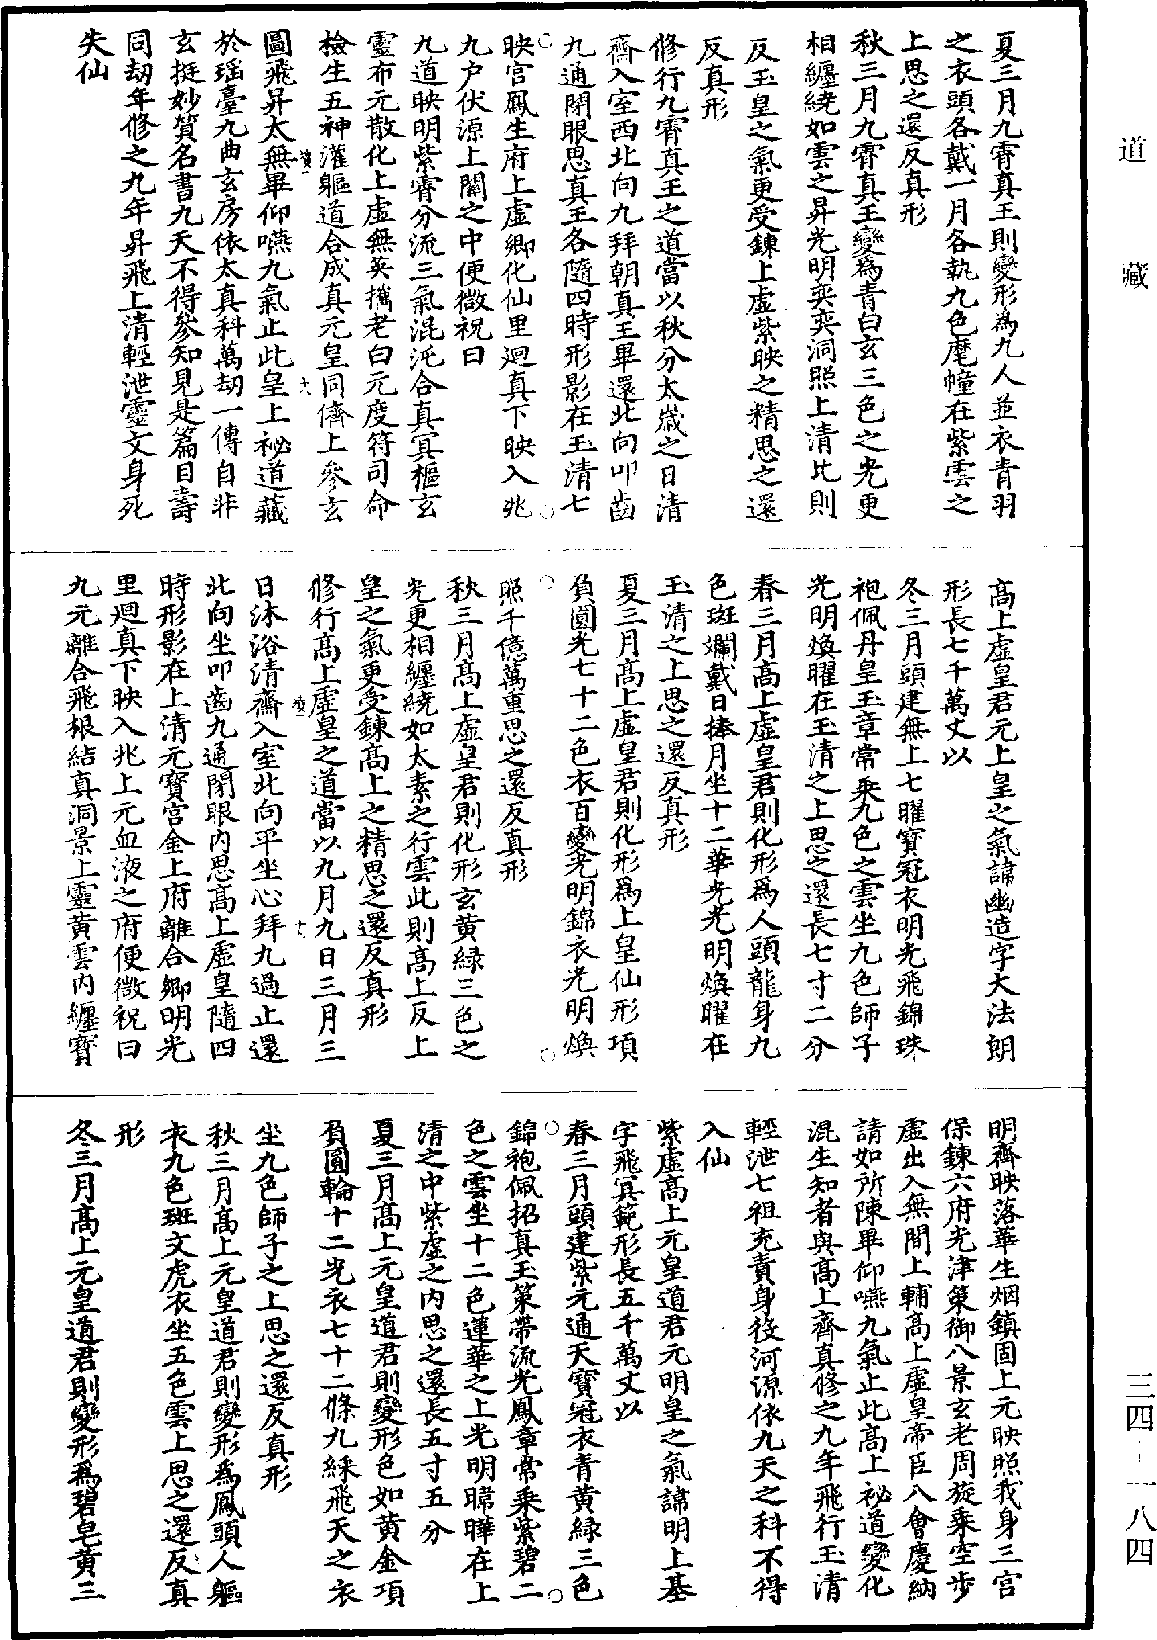 道藏
三四-一八四
夏三月九霄真王則變形為九人並衣青羽
之衣頭各戴一月各執九色麾幢在紫雲之
上思之還反真形
秋三月九霄真王變為青白玄三色之光更
相纏繞如雲之昇光明奕奕洞照上清比則
反玉皇之氣更受鍊上虛紫映之精思之還
反真形
修行九霄真王之道當以秋分太歲之日清
齋入室西北向九拜朝真王畢還北向叩齒
九通閉眼思真王各隨四時形影在玉清七
映宮鳳生府上虛鄉化仙里迴真下映入兆
九戶伏源上關之中便微祝曰
九道映明紫霄分流三氣混沌合真冥樞玄
靈布元散化上虛無英攜老白元度符司命
檢生五神灌軀道合成真元皇同儕上參玄
圖飛昇太無畢仰嚥九氣止此皇上祕道藏
於瑶臺九曲玄房依太真科萬劫一傳自非
玄挺妙質名書九天不得參知見是篇目壽
同劫年修之九年昇飛上清輕泄靈文身死
失仙
高上虛皇君元上皇之氣諱幽造字大法朗
形長七千萬丈以
冬三月頭建無上七曜寶冠衣明光飛錦珠
袍佩丹皇玉章常乘九色之雲坐九色師子
光明煥曜在玉清之上思之還長七寸二分
春三月高上虛皇君則化形為人頭龍身九
色斑斕戴日捧月坐十二華光光明煥曜在
玉清之上思之還反真形
夏三月高上虛皇君則化形為上皇仙形項
負圓光七十二色衣百變光明錦衣光明煥
照千億萬重思之還反真形
秋三月高上虛皇君則化形玄黃綠三色之
光更相纏繞如太素之行雲此則高上反上
皇之氣更受鍊高上之精思之還反真形
修行高上虛皇之道當以九月九日三月三
日沐浴清齋入室北向平坐心拜九過止還
北向坐叩齒九通閉眼內思高上虛皇隨四
時形影在上清元寶宮金上府離合鄉明光
里迴真下映入兆上元血液之府便微祝曰
九元離合飛根結真洞景上靈黃雲內纏寶
明齊映落華生烟鎮固上元映照我身三宮
保鍊六府光津策御八景玄老周旋乘空步
虛出入無間上輔高上虛皇帝臣八會慶納
請如所陳畢仰嚥九氣止此高上祕道變化
混生知者與高上齊真修之九年飛行玉清
輕泄七祖充責身役河源依九天之科不得
入仙
紫虛高上元皇道君元明皇之氣諱明上基
字飛冥範形長五千萬丈以
春三月頭建紫元通天寶冠衣青黃綠三色
錦袍佩招真玉策帶流光鳳章常乘紫碧二
色之雲坐十二色蓮華之上光明暐曄在上
清之中紫虛之內思之還長五寸五分
夏三月高上元皇道君則變形色如黃金項
負圓輪十二光衣七十二條九綵飛天之衣
坐九色師子之上思之還反真形
秋三月高上元皇道君則變形為鳳頭人軀
衣九色斑文虎衣坐五色雲上思之還反真
形
冬三月高上元皇道君則變形為碧皂黃三